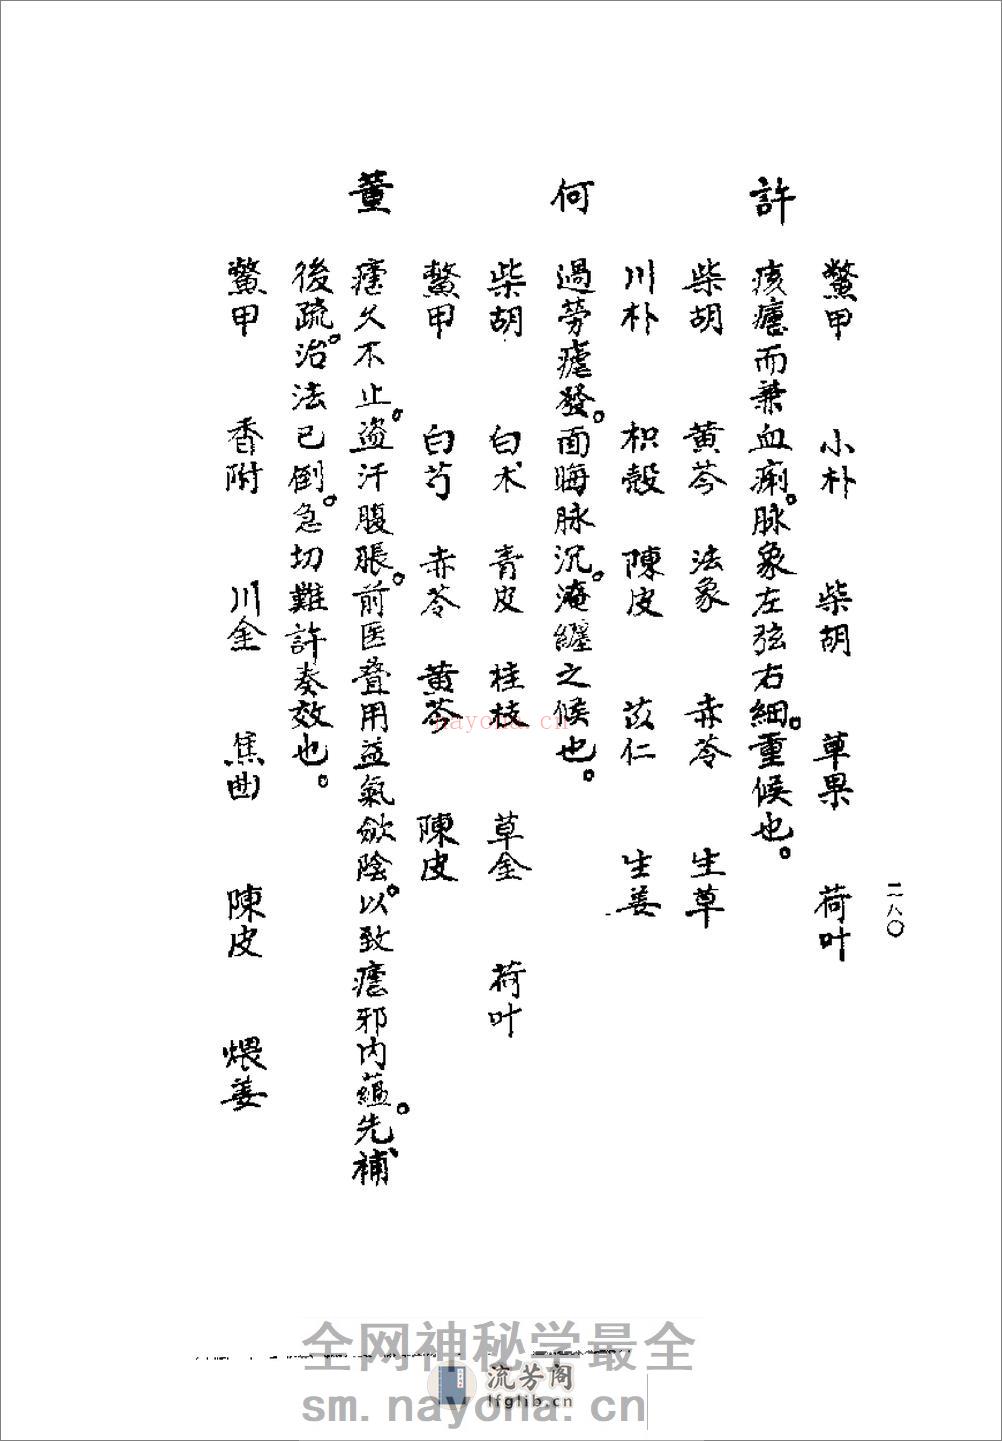 二八〇
鳖甲 小朴 柴胡 草果 荷叶
許 痎瘧而兼血痢。脉象左弦右細。重候也。
柴胡 黄芩 法象 赤苓 生草
川朴 枳殼 陳皮 苡仁 生姜
何 過勞瘧發。面晦脉沉。淹纏之候也。
柴胡 白术 青皮 桂枝 草金 荷叶
鳖甲 白芍 赤苓 黄芩 陳皮
董 瘧久不止。盗汗腹脹。前医叠用益氣歛陰。以致瘧邪内蘊。先補
後疏。治法已倒。急切難許奏效也。
鳖甲 香附 川金 焦曲 陳皮 煨姜
nayona.cn
全网神秘学最全
流芳阁
lfglib.cn
sm.nayona.cn